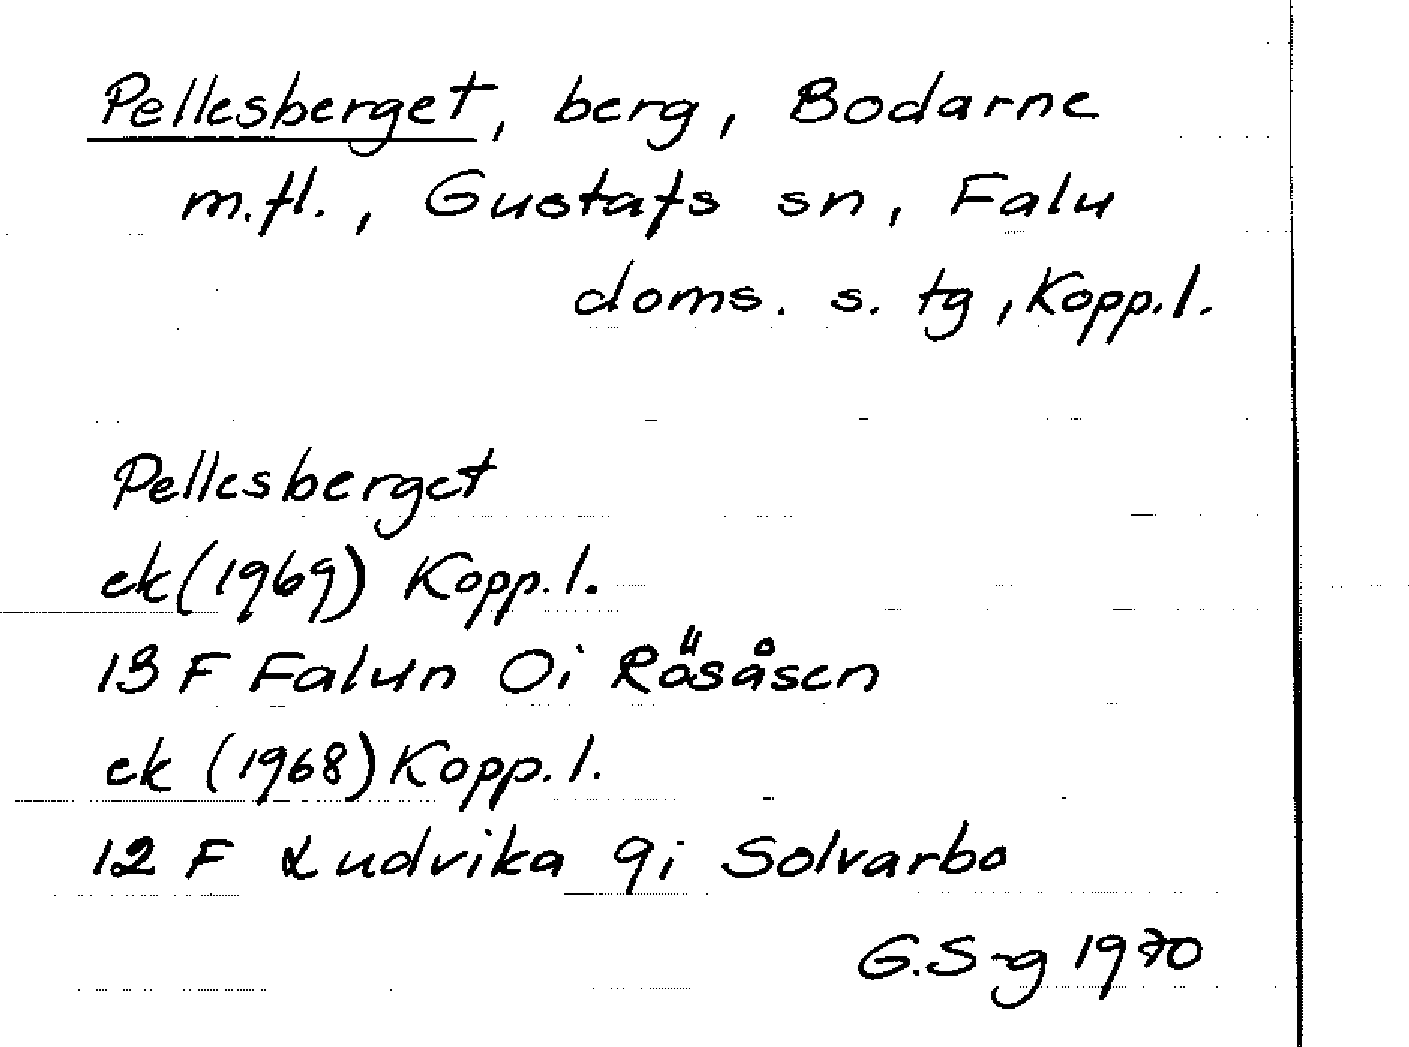 Pellesberget, berg, Bodarne
m.fl., Gustafs sn, Falu
doms. s. tg, Kopp. l.
Pellesberget
ek (1969) Kopp. l.
13 F Falun 0i Räsåsen
ek (1968) Kopp. l.
12 F Ludvika 9i Solvarbo
G.S-g 1970